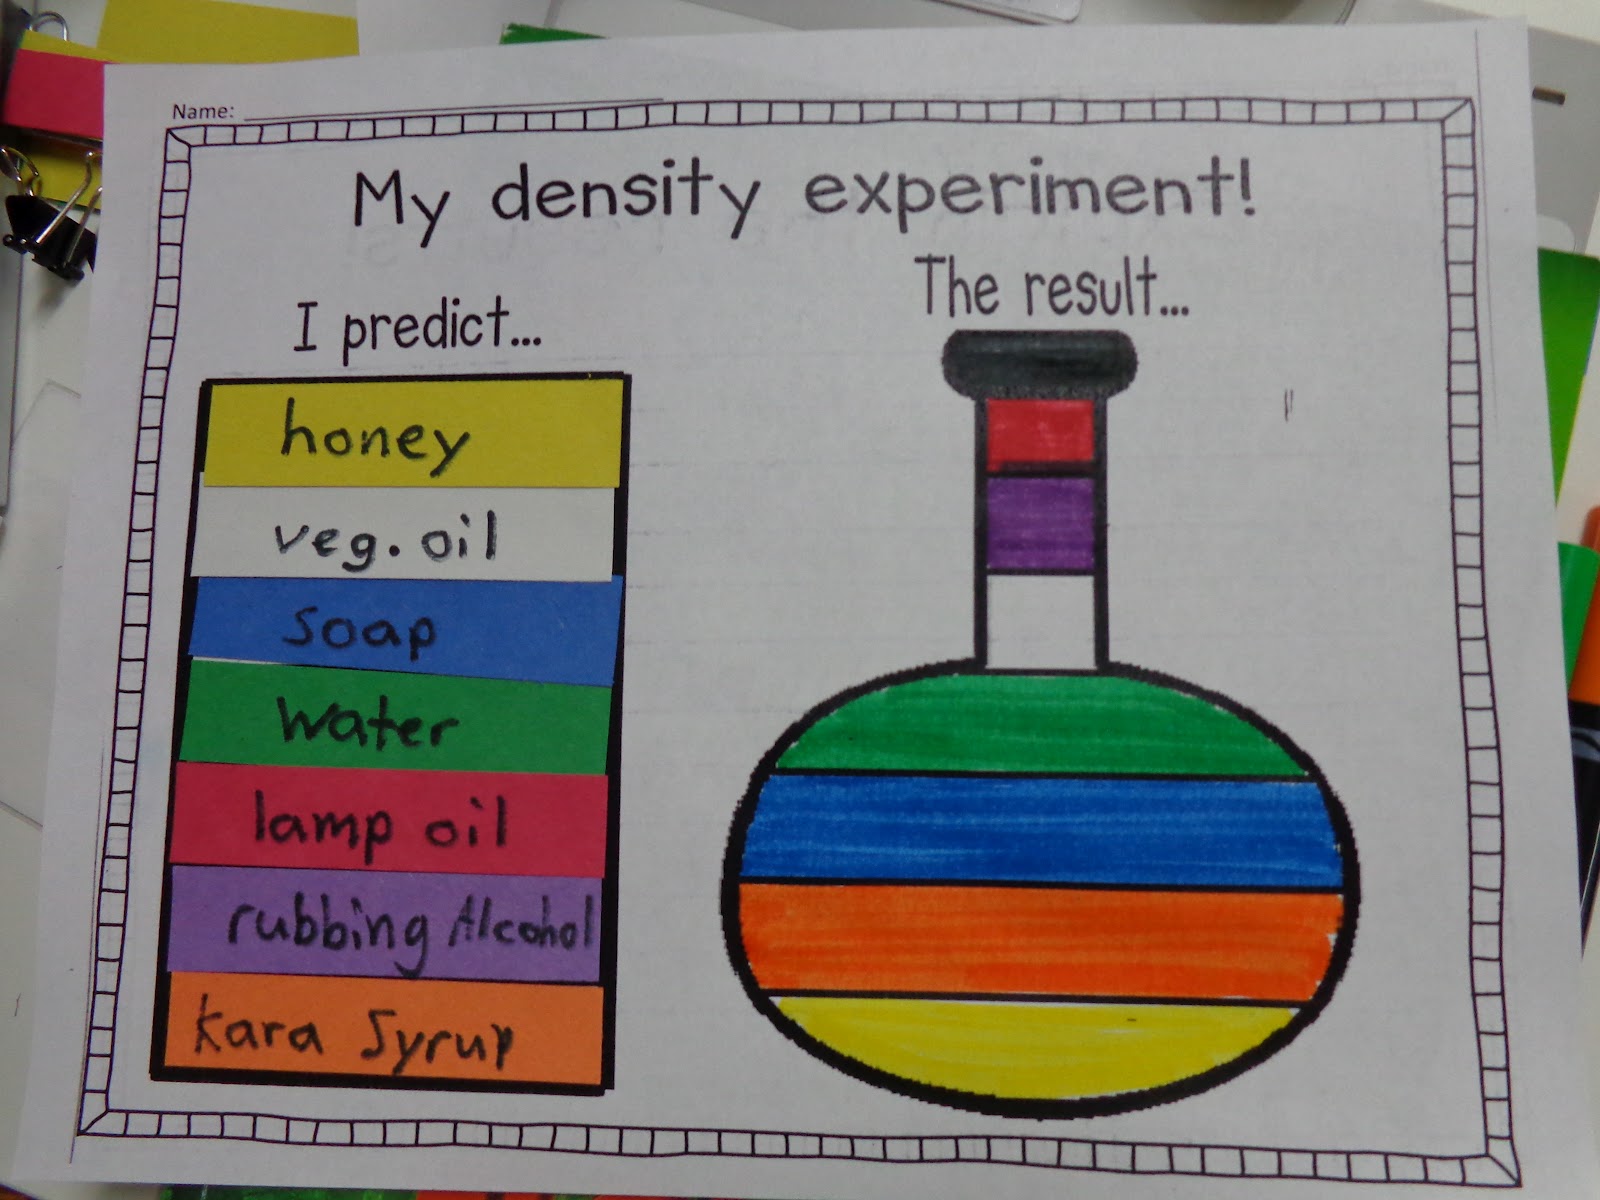 Name:
My density experiment!
I predict...
honey
veg. oil
soap
water
lamp oil
rubbing Alcohol
kara Syrup
The result...